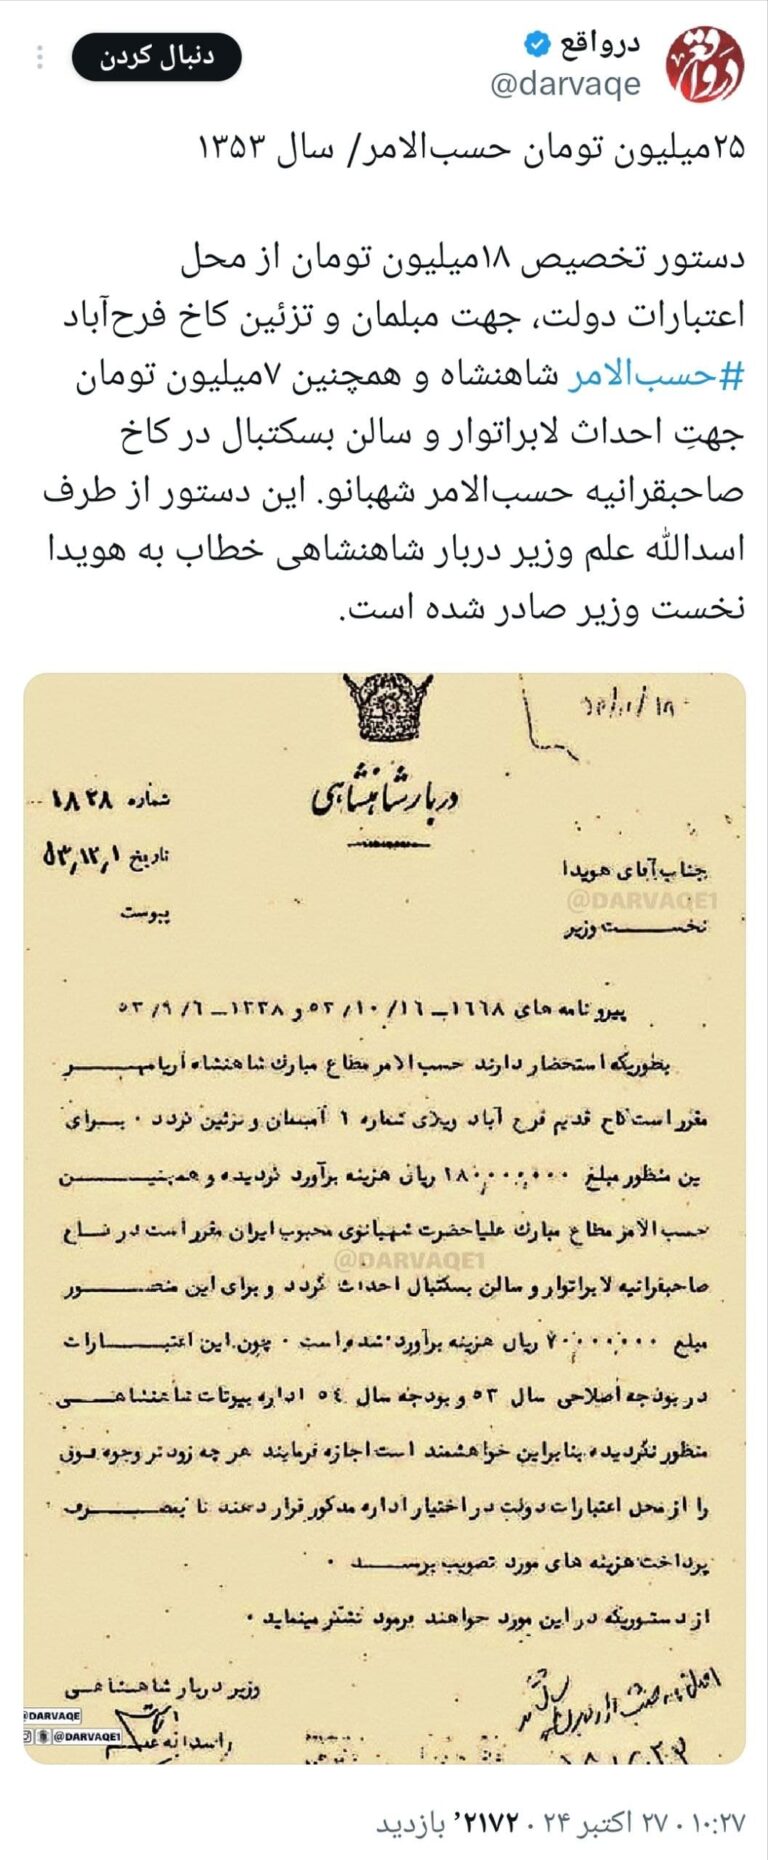 درواقع
@darvaqe
دنبال کردن
۲۵میلیون تومان حسب‌الامر/ سال ۱۳۵۳
دستور تخصیص ۱۸میلیون تومان از محل
اعتبارات دولت، جهت مبلمان و تزئین کاخ فرح‌آباد
#حسب‌الامر شاهنشاه و همچنین ۷میلیون تومان
جهتِ احداث لابراتوار و سالن بسکتبال در کاخ
صاحبقرانیه حسب‌الامر شهبانو. این دستور از طرف
اسدالله علم وزیر دربار شاهنشاهی خطاب به هویدا
نخست وزیر صادر شده است.
دربار شاهنشاهی
شماره ۱۸۲۸
تاریخ ۵۳,۱۲,۱
پیوست
جناب آقای هویدا
@DARVAQE1
نخست وزیر
پیرو نامه های ۱۶۶۸ــ۵۳/۱۰/۱۶ و ۱۳۳۸ــ۵۳/۹/۶
بطوریکه استحضار دارند حسب الامر مطاع مبارک شاهنشاه آریامهر
مقرر است کاخ قدیم فرح آباد ویلای شماره ۱ مبلمان و تزئین گردد ۰ برای
این منظور مبلغ ۱۸۰,۰۰۰,۰۰۰ ریال هزینه برآورد گردیده و همچنین
حسب الامر مطاع مبارک علیاحضرت شهبانوی محبوب ایران مقرر است در کاخ
@DARVAQE1
صاحبقرانیه لابراتوار و سالن بسکتبال احداث گردد و برای این منظور
مبلغ ۷۰,۰۰۰,۰۰۰ ریال هزینه برآورد شده است ۰ چون این اعتبارات
در بودجه اصلاحی سال ۵۳ و بودجه سال ۵۴ اداره بیوتات شاهنشاهی
منظور نگردیده بنابراین خواهشمند است اجازه فرمایند هر چه زودتر وجوه فوق
را از محل اعتبارات دولت در اختیار اداره مذکور قرار دهند تا بمصرف
پرداخت هزینه های مورد تصویب برسد ۰
از دستوریکه در این مورد خواهند فرمود تشکر مینماید ۰
وزیر دربار شاهنشاهی
اسدالله علم
@DARVAQE
@DARVAQE1
۱۰:۲۷ · ۲۷ اکتبر ۲۴ · ۲٬۱۷۲ بازدید